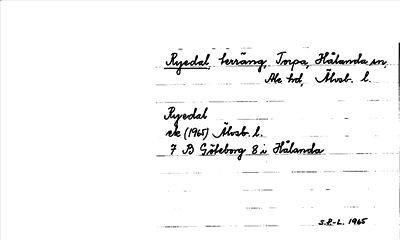 Ryedal, terräng, Torpa, Hålanda sn,
Ale hd, Älvsb. l.
Ryedal
ek (1965) Älvsb. l.
7 B Göteborg 8 i Hålanda
S.P-L. 1965